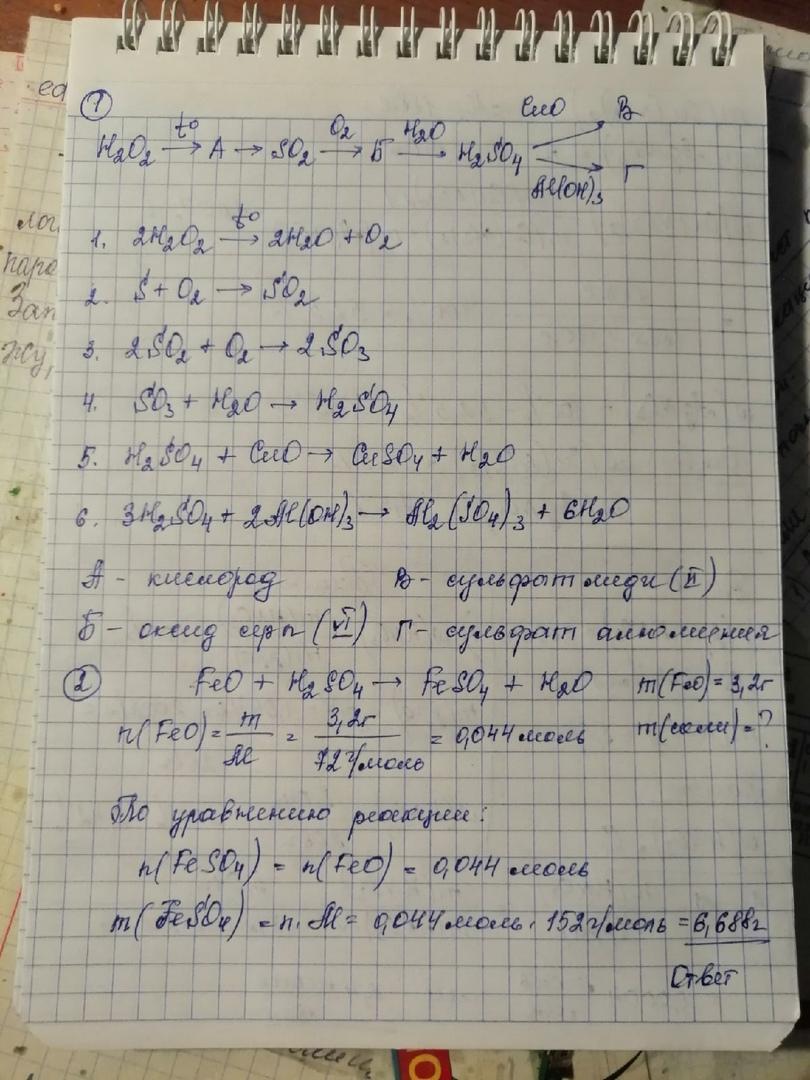 1
CuO B
H₂O₂ —t°→ A → SO₂ —O₂→ Б —H₂O→ H₂SO₄
Al(OH)₃ Г
1. 2H₂O₂ —t°→ 2H₂O + O₂
2. S + O₂ → SO₂
3. 2SO₂ + O₂ → 2SO₃
4. SO₃ + H₂O → H₂SO₄
5. H₂SO₄ + CuO → CuSO₄ + H₂O
6. 3H₂SO₄ + 2Al(OH)₃ → Al₂(SO₄)₃ + 6H₂O
А - кислород В - сульфат меди (II)
Б - оксид серы (VI) Г - сульфат алюминия
2 FeO + H₂SO₄ → FeSO₄ + H₂O m(FeO) = 3,2г
n(FeO) = m/M = 3,2г/72г/моль = 0,044 моль m(соли) = ?
По уравнению реакции:
n(FeSO₄) = n(FeO) = 0,044 моль
m(FeSO₄) = n · M = 0,044 моль · 152 г/моль = 6,688г
Ответ